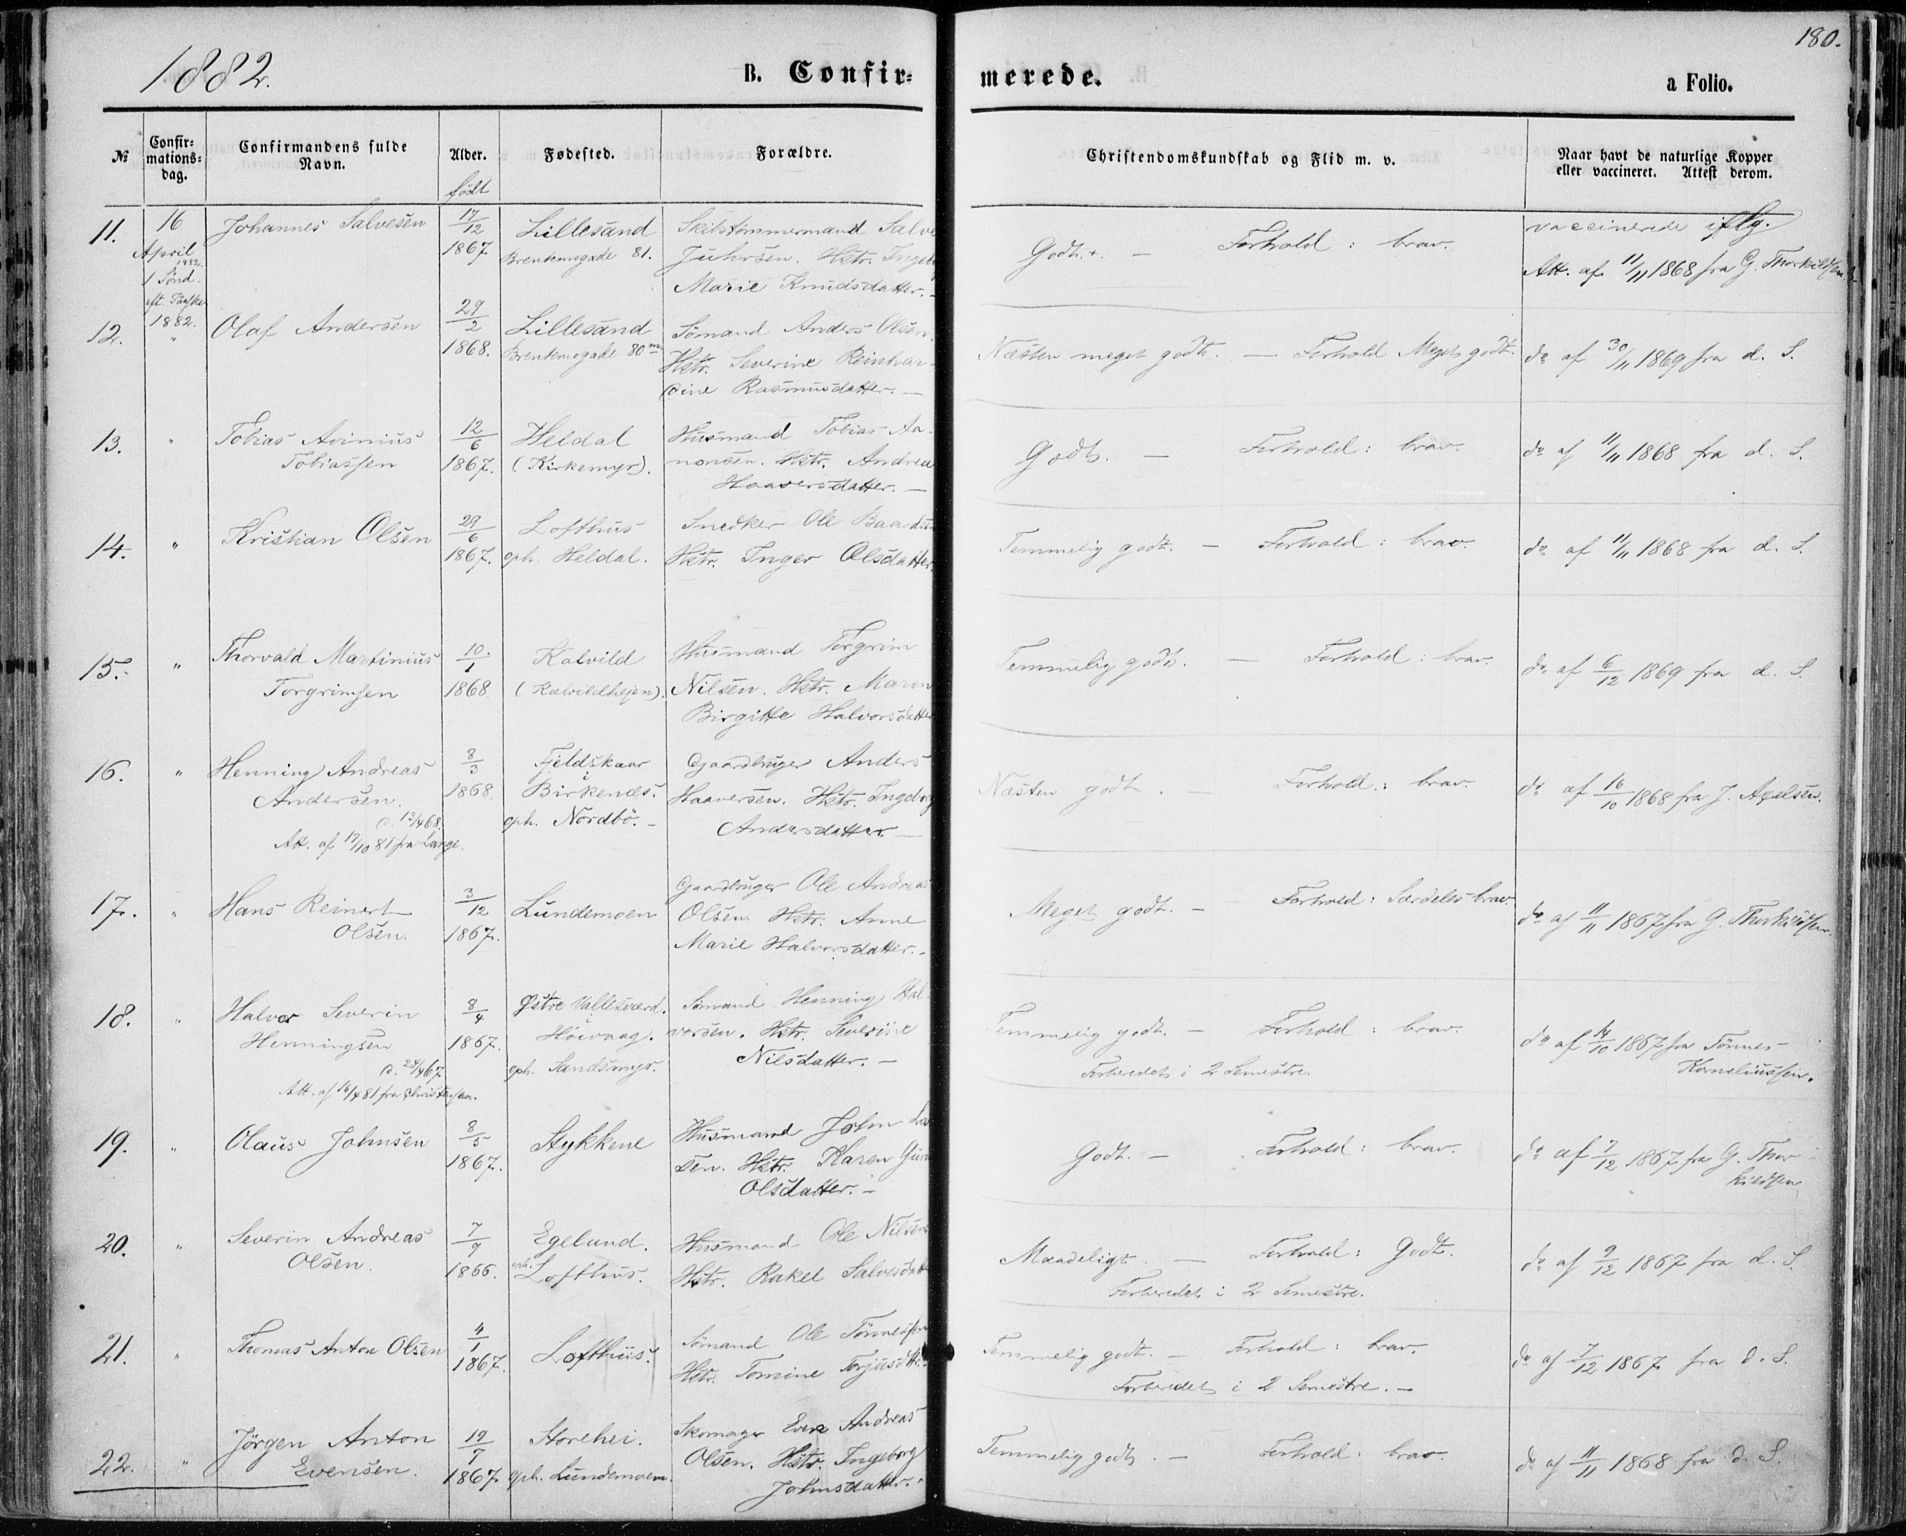 1882.
B. Confir-
merede.
180.
a Folio.
№
Confir-
mations-
dag.
Confirmandens fulde
Navn.
Alder.
født
Fødested.
Forældre.
Christendomskundskab og Flid m. v.
Naar havt de naturlige Kopper
eller vaccineret. Attest derom.
11.
16
April
1882.
1 Sønd.
eft. Paaske
1882.
Johannes Salvesen
17/12
1867
Lillesand
81.
Skibstømmermand Salve
Hstr.
Marie Knudsdatter. -
Godt. + - Forhold : brav.
vaccinerede iflg.
Att. af 11/11 1868 fra G. Thorkildsen
12.
"
Olaf Andersen
29/2
1868.
Lillesand
80
Sömand Anders Olsen.
Hstr. Severine Reinhar-
dine Rasmusdatter. -
Næsten meget godt. - Forhold Meget godt.
do af 30/11 1869 fra d. S.
13.
"
Tobias Avinius
Tobiassen
12/6
1867.
Heldal
(Kirkemyr).
Husmand Tobias Aa-
nonsen. Hstr. Andrea
Haaversdatter. -
Godt. - Forhold : brav.
do af 11/11 1868 fra d. S.
14.
"
Kristian Olsen
29/6
1867.
Lofthus
oph. Heldal.
Snedker Ole
Hstr. Inger Olsdatter.
Temmelig godt. - Forhold : brav.
do af 11/11 1868 fra d. S.
15.
"
Thorvald Martinius
Torgrimsen
10./1
1868
Kalvild
(Kalvildhejen).
Husmand Torgrim
Nilsen. Hstr. Maren
Birgitte Halvorsdatter
Temmelig godt. - Forhold : brav.
do af 6/12 1869 fra d. S.
16.
"
Henning Andreas
Andersen.
d. 13/4 68.
Att. af 17/10 81 fra Lange.
8/3
1868.
Fjeldskaar
i
Birkenæs.
oph. Nordbö. -
Gaardbruger Anders
Haaversen. Hstr. Ingeborg
Andersdatter -
Næsten godt. - Forhold : brav.
do af 16/10 1868 fra J. Axelsen.
17.
"
Hans Reinert
Olsen.
3/12
1867.
Lundemoen
Gaardbruger Ole Andreas
Olsen. Hstr. Anne
Marie Halvorsdatter. -
Meget godt. - Forhold : Særdeles brav
do af 11/11 1867 fra G. Thorkildsen.
18.
"
Halvor Severin
Henningsen
d. 24/4 67.
Att. af 16/4 81 fra Christensen.
8/4
1867.
Østre Vallesværd.
Höivaag.
oph. Sandsmyr.
Sömand Henning Hal-
vorsen. Hstr. Severine
Nilsdatter. -
Temmelig godt. - Forhold : brav.
Forberedet i 2 Semestre.
do af 14/10 1867 fra Tönnes
Korneliussen.
19.
"
Olaus Johnsen
8/5
1867.
Stykkene
Husmand John
sen. Hstr. Karen
Olsdatter. -
Godt. - Forhold : brav.
do af 7/12 1867 fra G. Thor-
kildsen
20.
"
Severin Andreas
Olsen.
7/9
1866.
Egelund.
oph. Lofthus.
Husmand Ole Nilsen
Hstr. Rakel
Maadeligt. - Forhold : Godt.
Forberedet i 2 Semestre.
do af 9/12 1867 fra d. S.
21.
"
Thomas Anton Olsen
4/1
1867.
Lofthus.
Sömand Ole Tönnessen
Hstr. Tomine
Temmelig godt. - Forhold : brav.
Forberedet i 2 Semestre. -
do af 7/12 1867 fra d. S.
22.
"
Jörgen Anton
Evensen.
19/7
1867
Storehei.
oph. Lundemoen.
Skomager Even Andreas
Olsen. Hstr. Ingeborg
Johnsdatter. -
Temmelig godt. - Forhold : brav.
do af 11/11 1868 fra d. S.